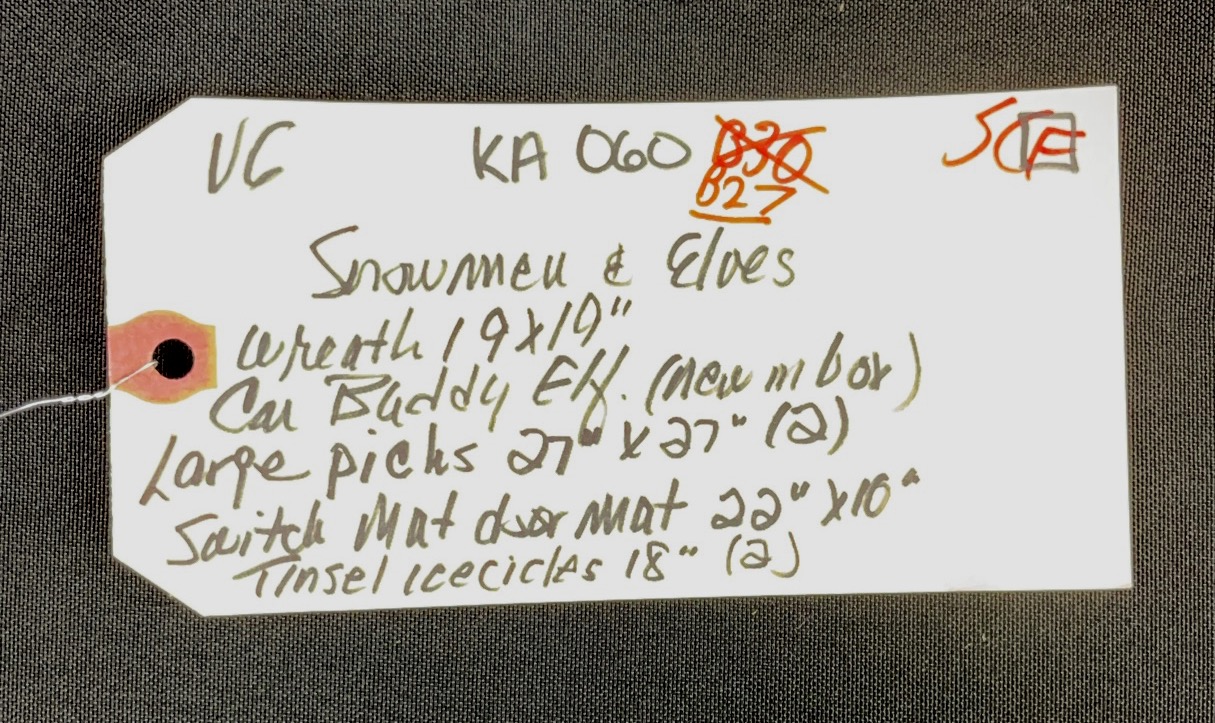 VG KA 060 B30 SCF
B27
Snowmen & Elves
Wreath 19x19"
Car Buddy Elf. (new in box)
Large picks 27" x 27" (2)
Switch Mat door mat 22" x10"
Tinsel icecicles 18" (2)